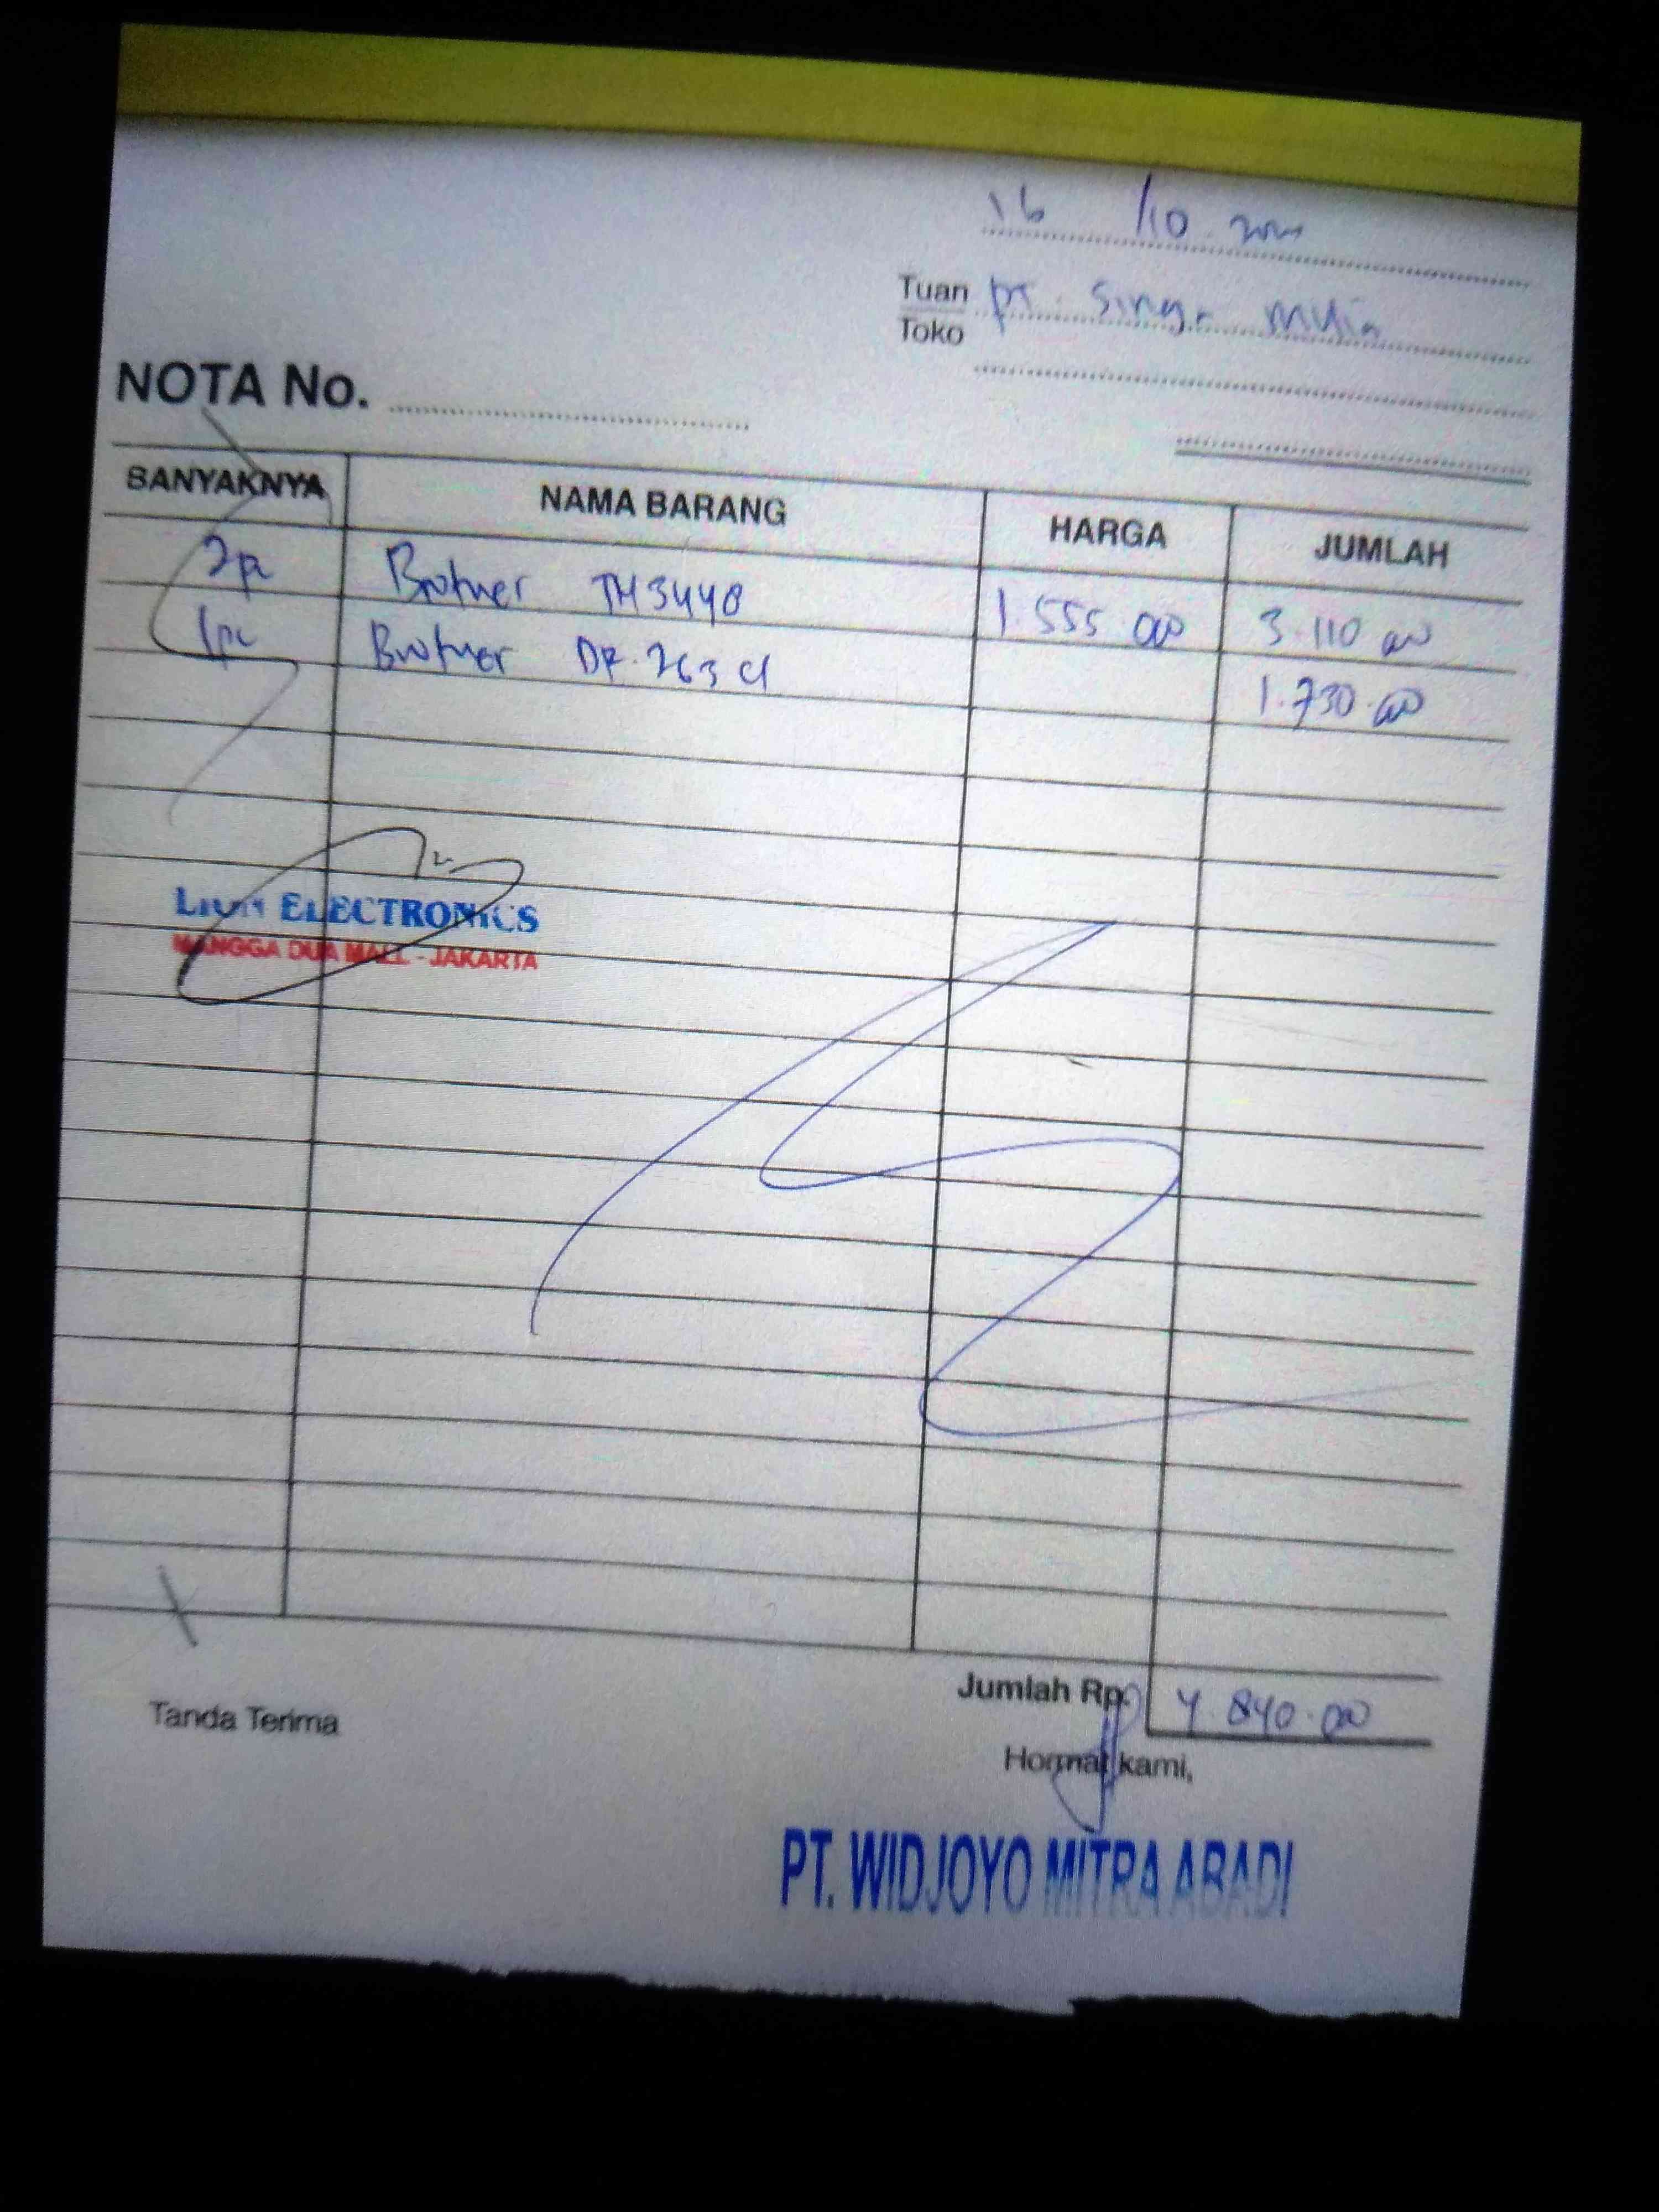 16 /10
Tuan pt.
Toko
NOTA No.
BANYAKNYA NAMA BARANG HARGA JUMLAH
Brother 3448 1.555.000 3.110.000
Brother DR.263 Cl 1.730.000
ELECTRONICS
MANGGA DUA MALL - JAKARTA
Jumlah Rp. 4.840.000
Tanda Terima
Hormat kami,
PT. WIDJOYO MITRA ABADI